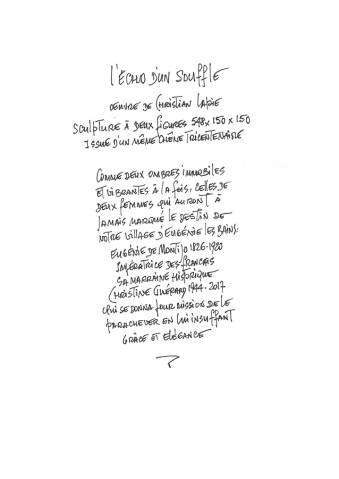 L'ÉCHO D'UN SOUFFLE
OEUVRE DE CHRISTIAN LAPIE
SCULPTURE À DEUX FIGURES 540 x 150 x 150
ISSUE D'UN MÊME CHÊNE TRICENTENAIRE
COMME DEUX OMBRES IMMOBILES
ET VIBRANTES À LA FOIS, CELLES DE
DEUX FEMMES QUI AURONT À
JAMAIS MARQUÉ LE DESTIN DE
NOTRE VILLAGE D'EUGÉNIE LES BAINS:
EUGÉNIE DE MONTIJO 1826-1920
IMPÉRATRICE DES FRANÇAIS
SA MARRAINE HISTORIQUE
CHRISTINE GUÉRARD 1944-2017
QUI SE DONNA POUR MISSION DE LE
PARACHEVER EN LUI INSUFFLANT
GRÂCE ET ÉLÉGANCE